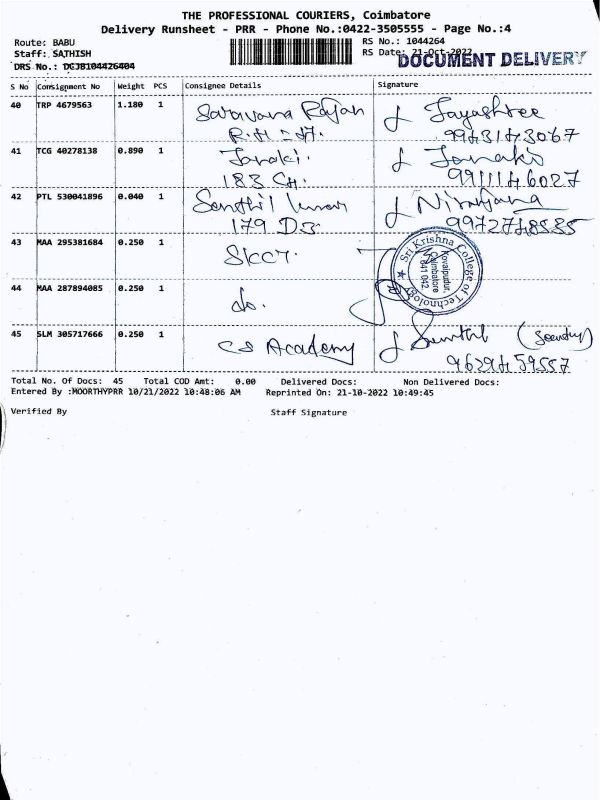 THE PROFESSIONAL COURIERS, Coimbatore
Delivery Runsheet - PRR - Phone No.:0422-3505555 - Page No.:4
Route: BABU RS No.: 1044264
Staff: SATHISH RS Date: 21-Oct-2022
DOCUMENT DELIVERY
DRS No.: DGJB104426404
S No Consignment No Weight PCS Consignee Details Signature
40 TRP 4679563 1.180 1 Saravana Rajan Jayashree
41 TCG 40278138 0.890 1 Janaki.
183
42 PTL 530041896 0.040 1 Senthil kumar Niranjana
179 D3
43 MAA 295381684 0.250 1 SKCT.
Sri Krishna College of Technology
Kovaipudur,
Coimbatore
641 042
44 MAA 287894085 0.250 1 do.
45 SLM 305717666 0.250 1 CS Academy
Total No. Of Docs: 45 Total COD Amt: 0.00 Delivered Docs: Non Delivered Docs:
Entered By :MOORTHYPRR 10/21/2022 10:48:06 AM Reprinted On: 21-10-2022 10:49:45
Verified By Staff Signature